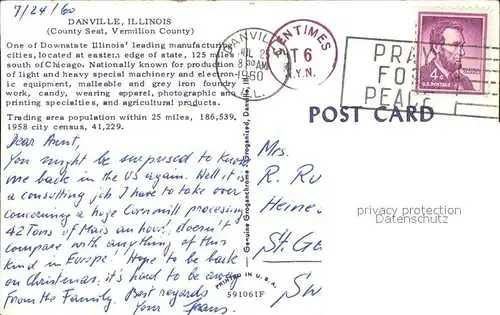 7/24/60
DANVILLE, ILLINOIS
(County Seat, Vermilion County)
One of Downstate Illinois' leading manufacturing
cities, located at eastern edge of state, 125 miles
south of Chicago. Nationally known for production
of light and heavy special machinery and electron-
ic equipment, malleable and grey iron foundry
work, candy, wearing apparel, photographic and
printing specialties, and agricultural products.
Trading area population within 25 miles, 186,539,
1958 city census, 41,229.
Dear Aunt,
You might be surprised to know
me back in the US again. Well it is
a consulting job I have to take over
concerning a huge Cornmill processing
42 Tons of Mais an hour! doesn't
compare with anything of this
kind in Europe! Hope to be back
on Christmas, it's hard to be away
from the Family. Best regards
Your
DANVILLE
JUL 25
8 30 AM
1960
ILL.
CENTIMES
T 6
N.Y.N.
PRAY
FOR
PEACE
4¢
U.S. POSTAGE
POST CARD
Genuine Groganchrome (Groganized), Danville, Ill.
PRINTED IN U.S.A.
591061F
Mrs.
R. Ru
St. Ga
privacy protection
Datenschutz